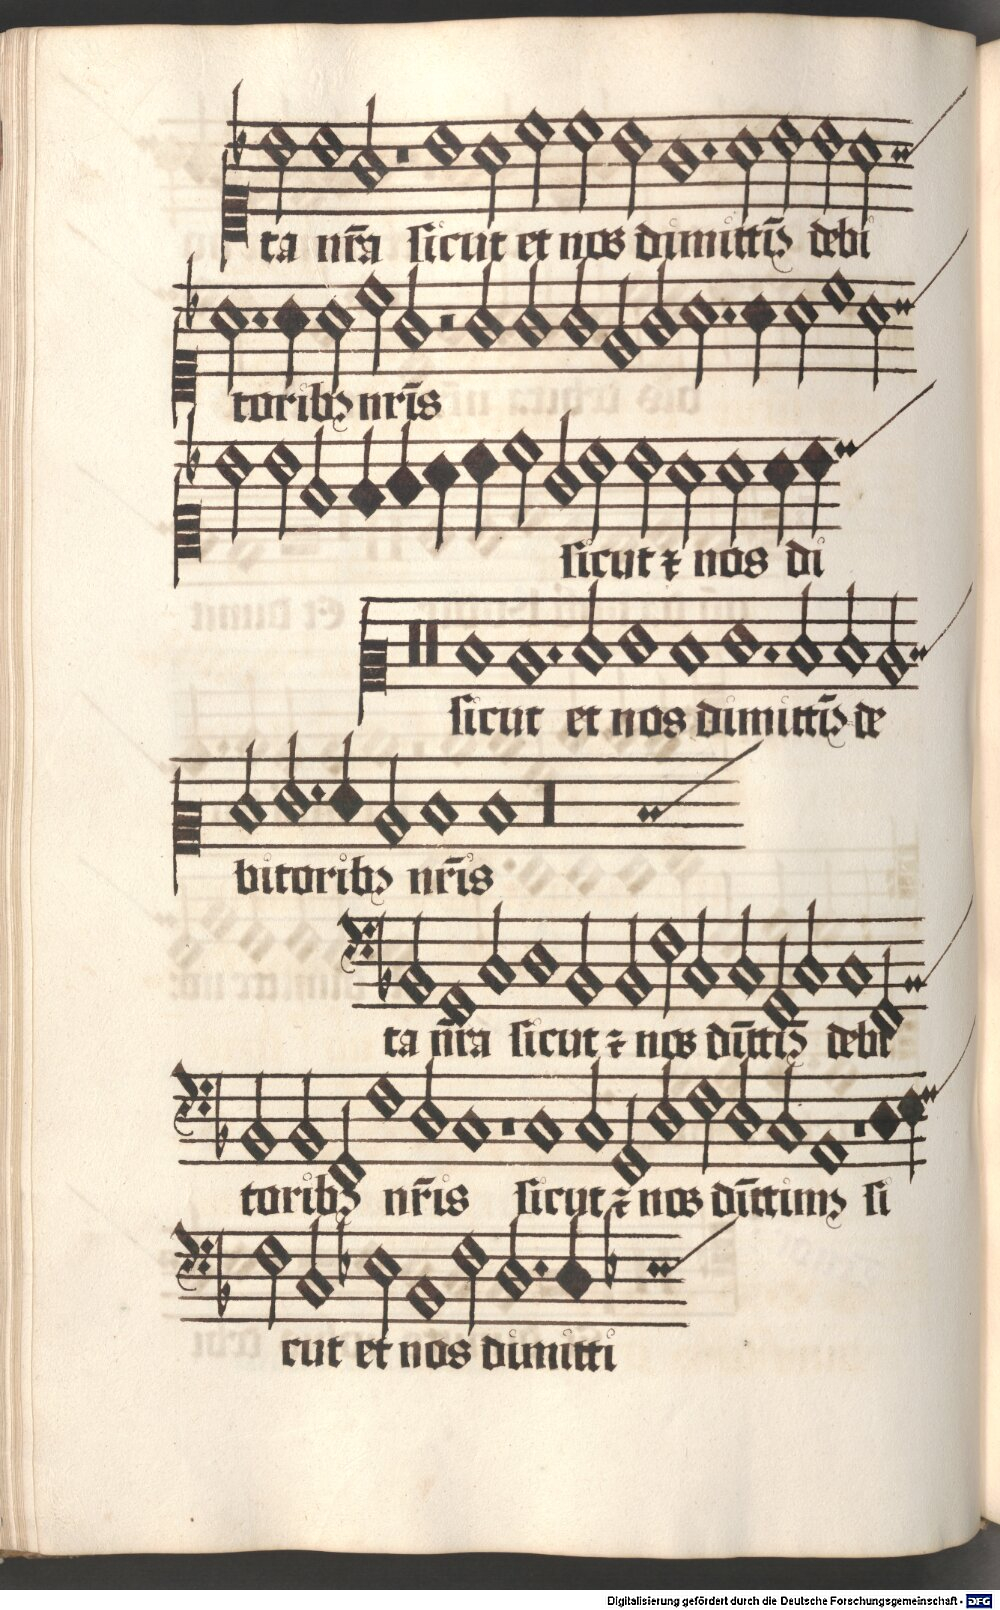 ta nr̄a sicut et nos dimittiꝰ debi
toribꝫ nr̄is
sicut ⁊ nos di
sicut et nos dimittiꝰ de
bitoribꝫ nr̄is
ta nr̄a sicut ⁊ nos di̅ttiꝰ debi
toribꝫ nr̄is sicut ⁊ nos di̅ttimꝰ si
cut et nos dimitti
Digitalisierung gefördert durch die Deutsche Forschungsgemeinschaft - DFG